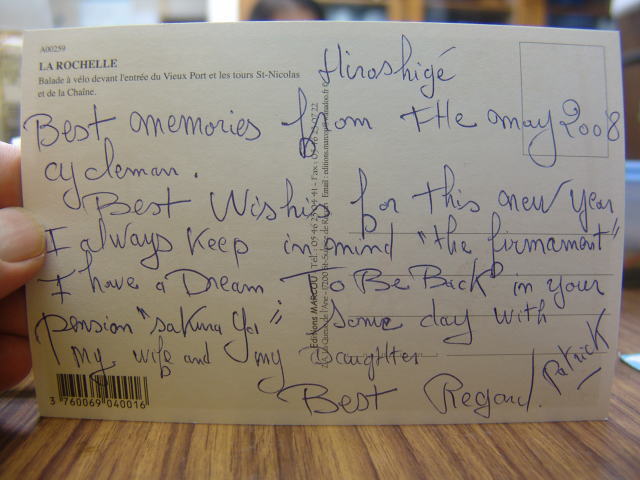 A00259
LA ROCHELLE
Balade à vélo devant l'entrée du Vieux Port et les tours St-Nicolas
et de la Chaîne.
Hiroshigé
Best memories from the may 2008
cycleman.
Best Wishis for this new year
I always keep in mind "the firmament"
I have a Dream To Be Back in your
pension "sakura ya" some day with
my wife and my Daughter
Best Regard.
Patrick
Editions MARCOU
3 760069 040016